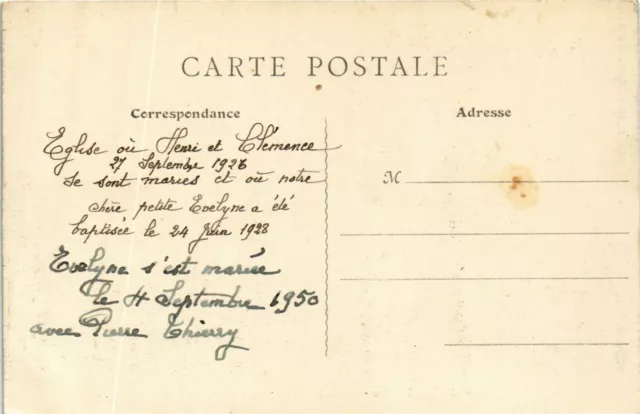 CARTE POSTALE
Correspondance
Adresse
Eglise où Henri et Clémence
27 Septembre 1926
se sont mariés et où notre
chère petite Evelyne a été
baptisée le 24 juin 1928
Evelyne s'est mariée
le 4 Septembre 1950
avec Pierre Thierry
M